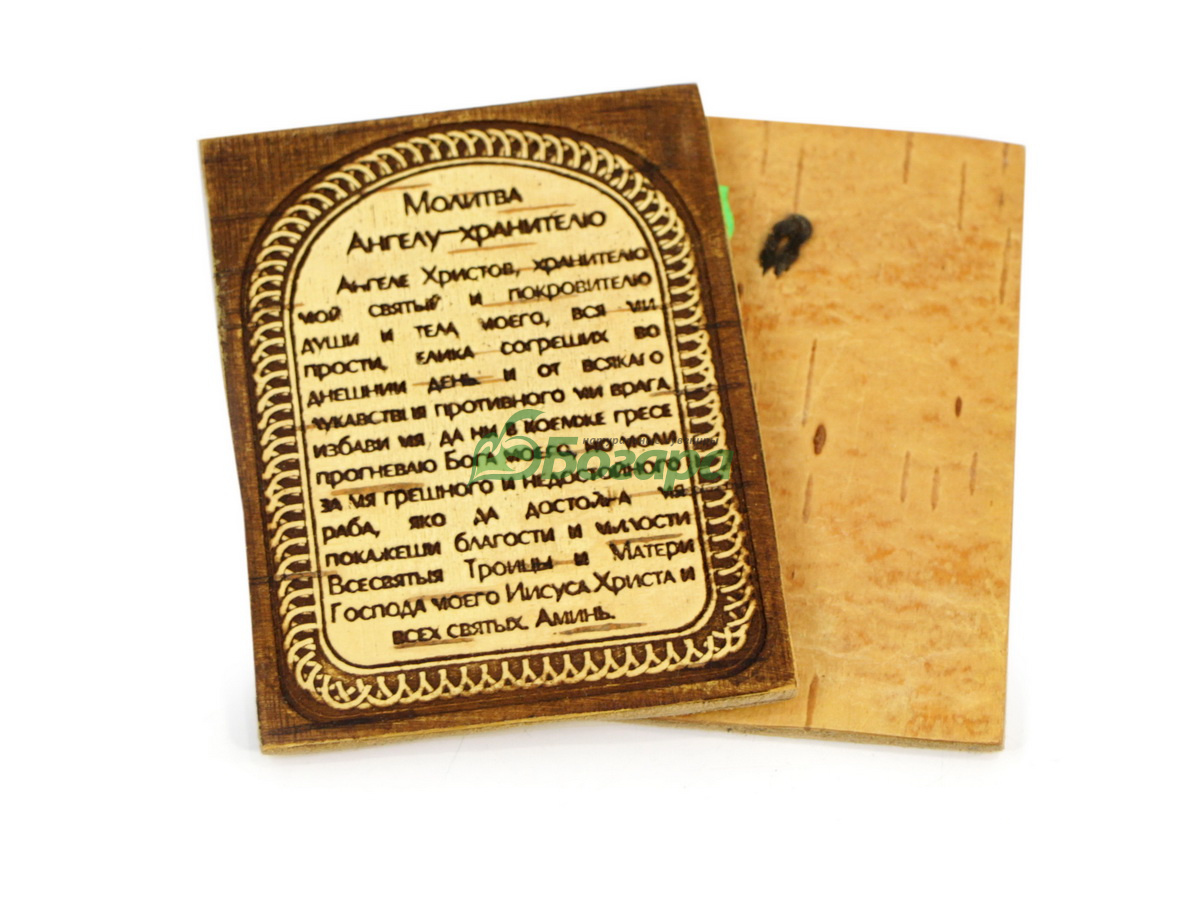 Молитва
Ангелу-хранителю
Ангеле Христов, хранителю
мой святый и покровителю
души и тела моего, вся ми
прости, елика согреших во
днешний день и от всякаго
лукавствия противного ми врага
избави мя, да ни в коемже гресе
прогневаю Бога моего, но моли
за мя грешного и недостойного
раба, яко да достойна мя
покажеши благости и милости
Всесвятыя Троицы и Матери
Господа моего Иисуса Христа и
всех святых. Аминь.
Бозара